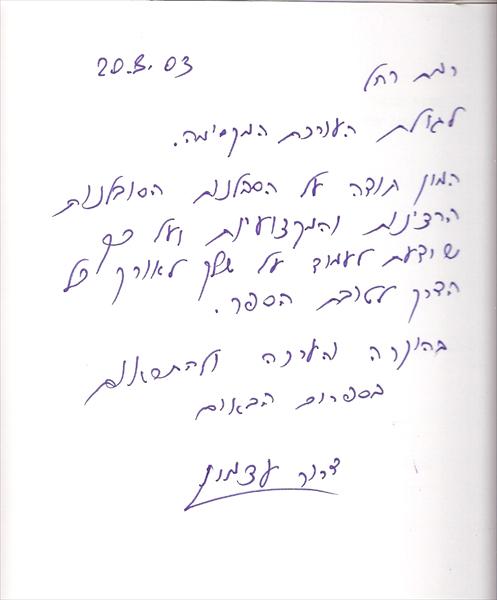 רמת רחל 20.8.03
לגאולת העורכת המקסימה.
המון תודה על הסבלנות הסובלנות
הרצינות והמקצועיות ועל כך
שידעת לעמוד על שלך לאורך כל
הדרך לטובת הספר.
בהוקרה והערכה ולהתראות
בספרים הבאים
דרור עצמון